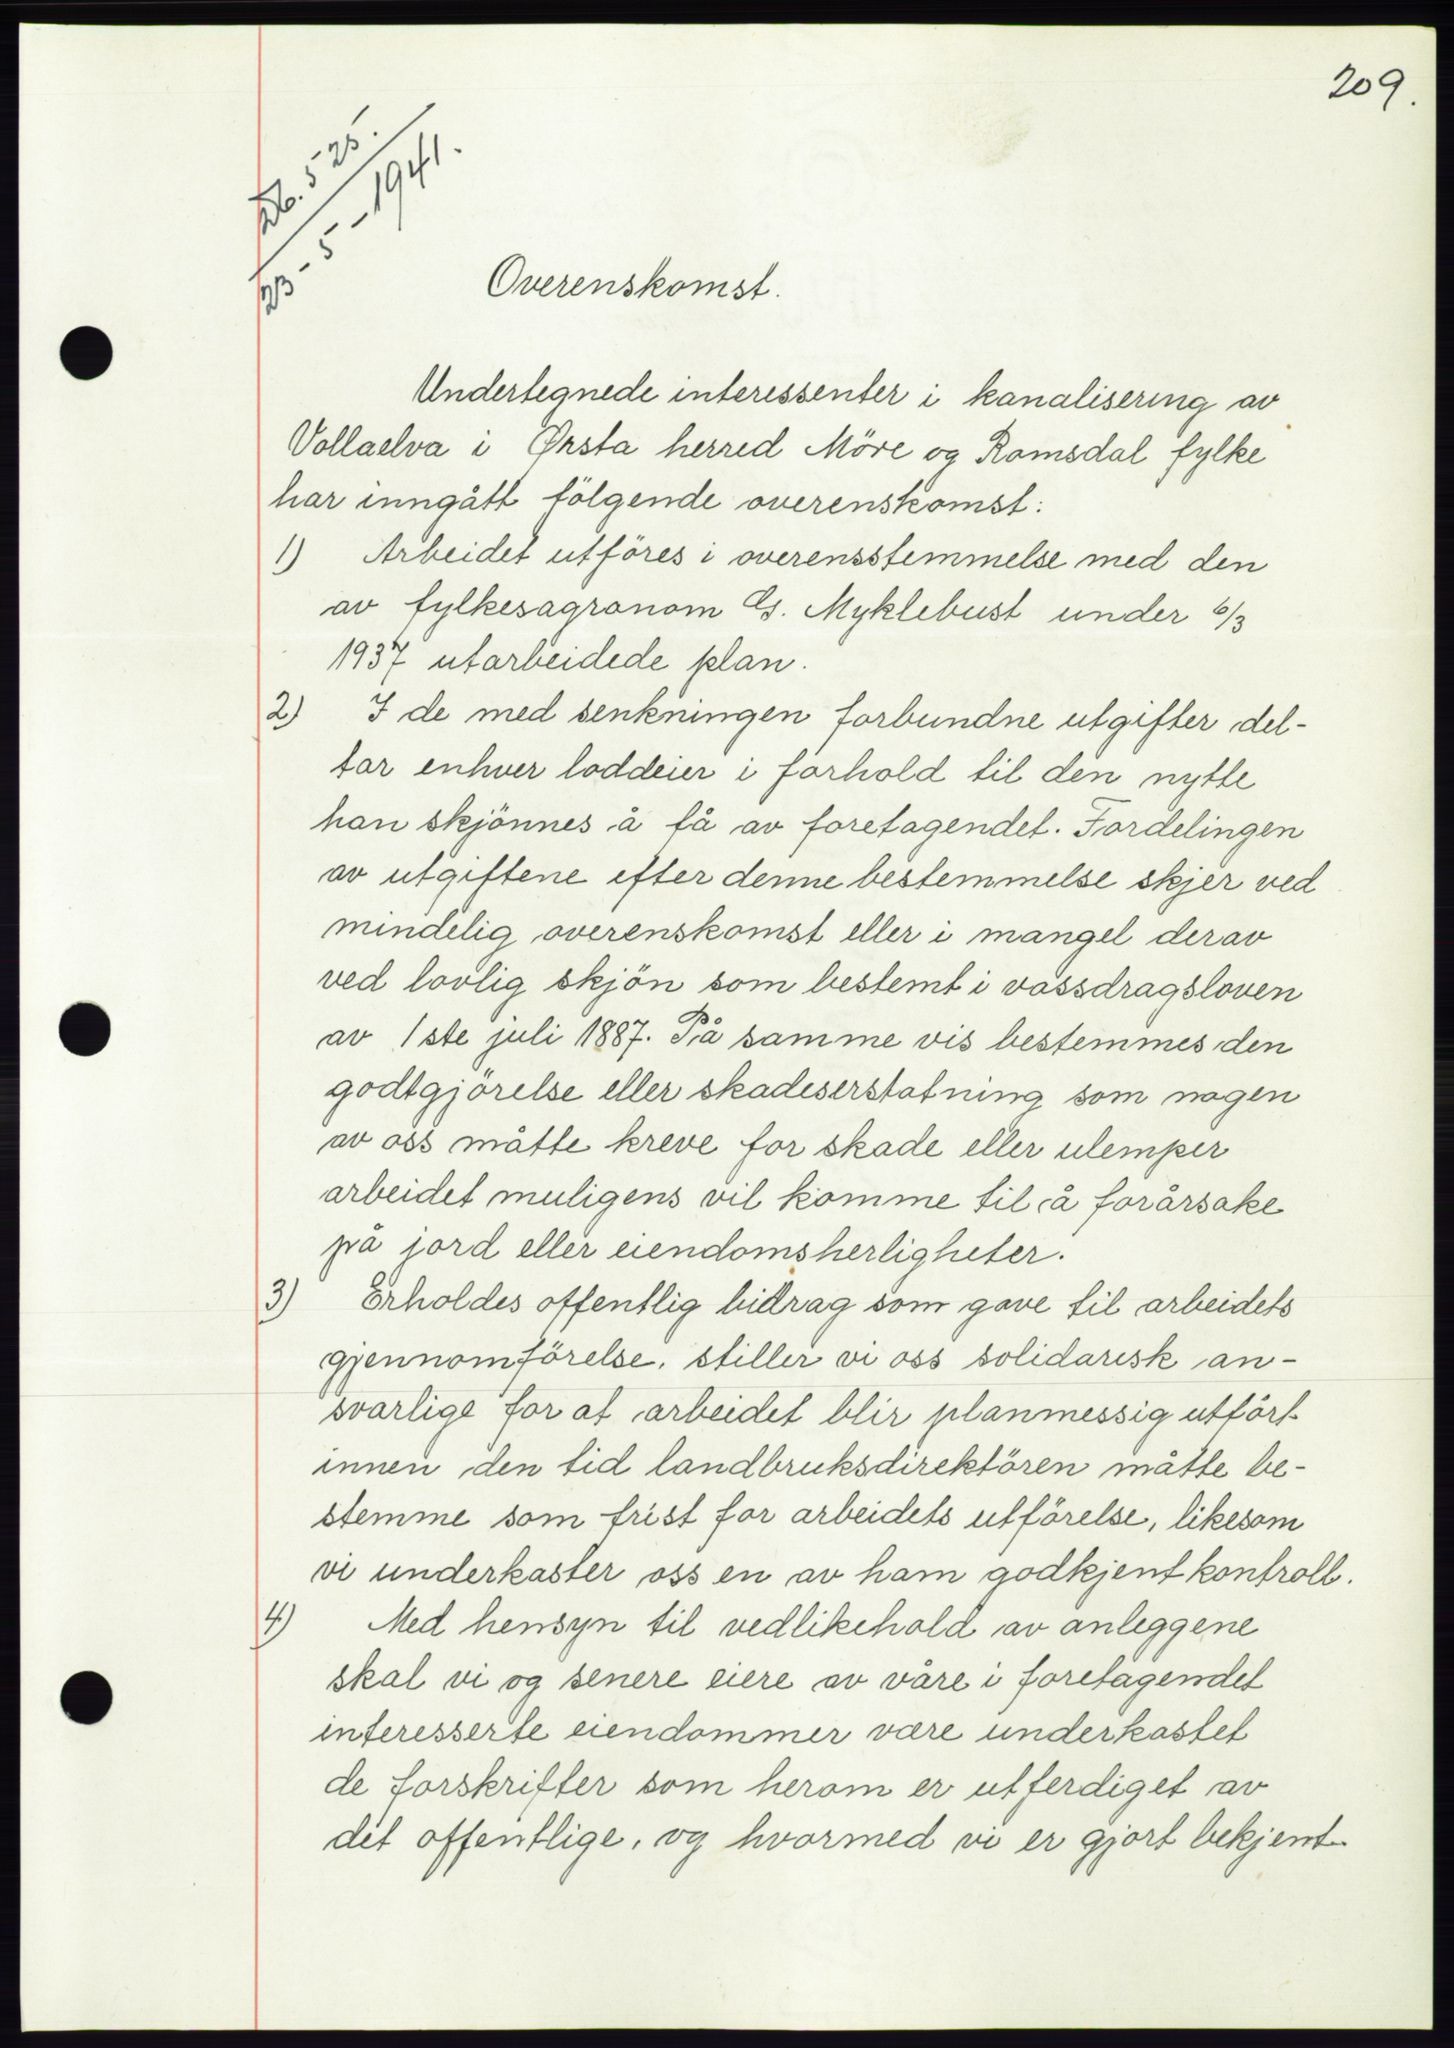 209.
Db. 525.
23-5-1941.
Overenskomst.
Undertegnede interessenter i kanalisering av
Vollaelva i Ørsta herred Möre og Romsdal fylke
har inngått fölgende overenskomst:
1) Arbeidet utföres i overensstemmelse med den
av fylkesagronom G. Myklebust under 6/3
1937 utarbeidede plan.
2) I de med senkningen forbundne utgifter del-
tar enhver loddeier i forhold til den nytte
han skjönnes å få av foretagendet. Fordelingen
av utgiftene efter denne bestemmelse skjer ved
mindelig overenskomst eller i mangel derav
ved lovlig skjön som bestemt i vassdragsloven
av 1ste juli 1887. På samme vis bestemmes den
godtgjörelse eller skadeserstatning som nogen
av oss måtte kreve for skade eller ulemper
arbeidet muligens vil komme til å forårsake
på jord eller eiendomsherligheter.
3) Erholdes offentlig bidrag som gave til arbeidets
gjennomförelse, stiller vi oss solidarisk an-
svarlige for at arbeidet blir planmessig utfört
innen den tid landbruksdirektören måtte be-
stemme som frist for arbeidets utförelse, likesom
vi underkaster oss en av ham godkjent kontroll.
4) Med hensyn til vedlikehold av anleggene
skal vi og senere eiere av våre i foretagendet
interesserte eiendommer være underkastet
de forskrifter som herom er utferdiget av
det offentlige, og hvormed vi er gjort bekjent